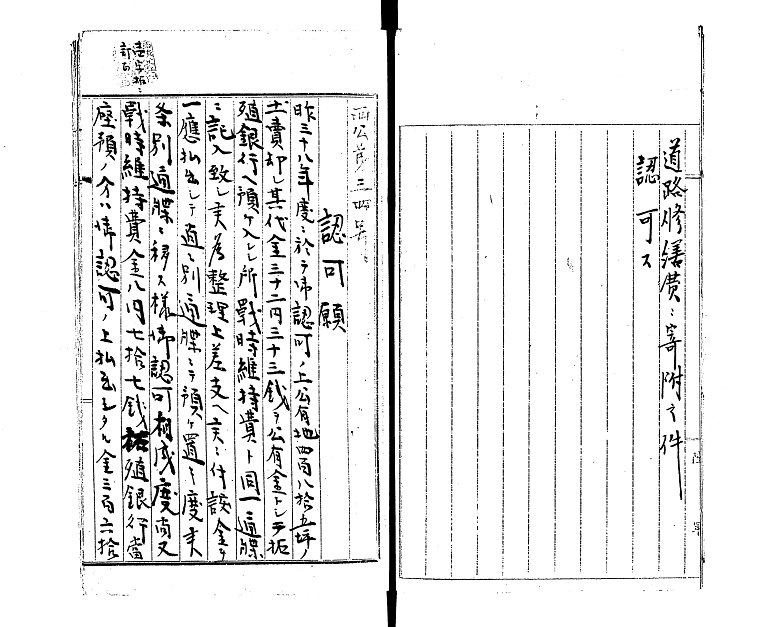 道路修繕費ニ寄附之件
認可ス
西公第三四号
認可願
昨三十八年度ニ於テ御認可ノ上公有地四百八拾五坪ノ
土賣却シ其代金三十二円三十三銭ヲ公有金トシテ拓
殖銀行ヘ預ケ入レシ所戰時維持費ト同一通牒
ニ記入致シ実ハ整理上差支ヘ実ニ付該金ヲ
一應払出シテ適ニ別通牒ニテ預ケ置キ度実
条別通牒ニ移ス様御認可相成度尚又
戰時維持費金八円七拾七銭拓殖銀行當
座預ノ分ハ御認可ノ上払出シタル金三百六拾